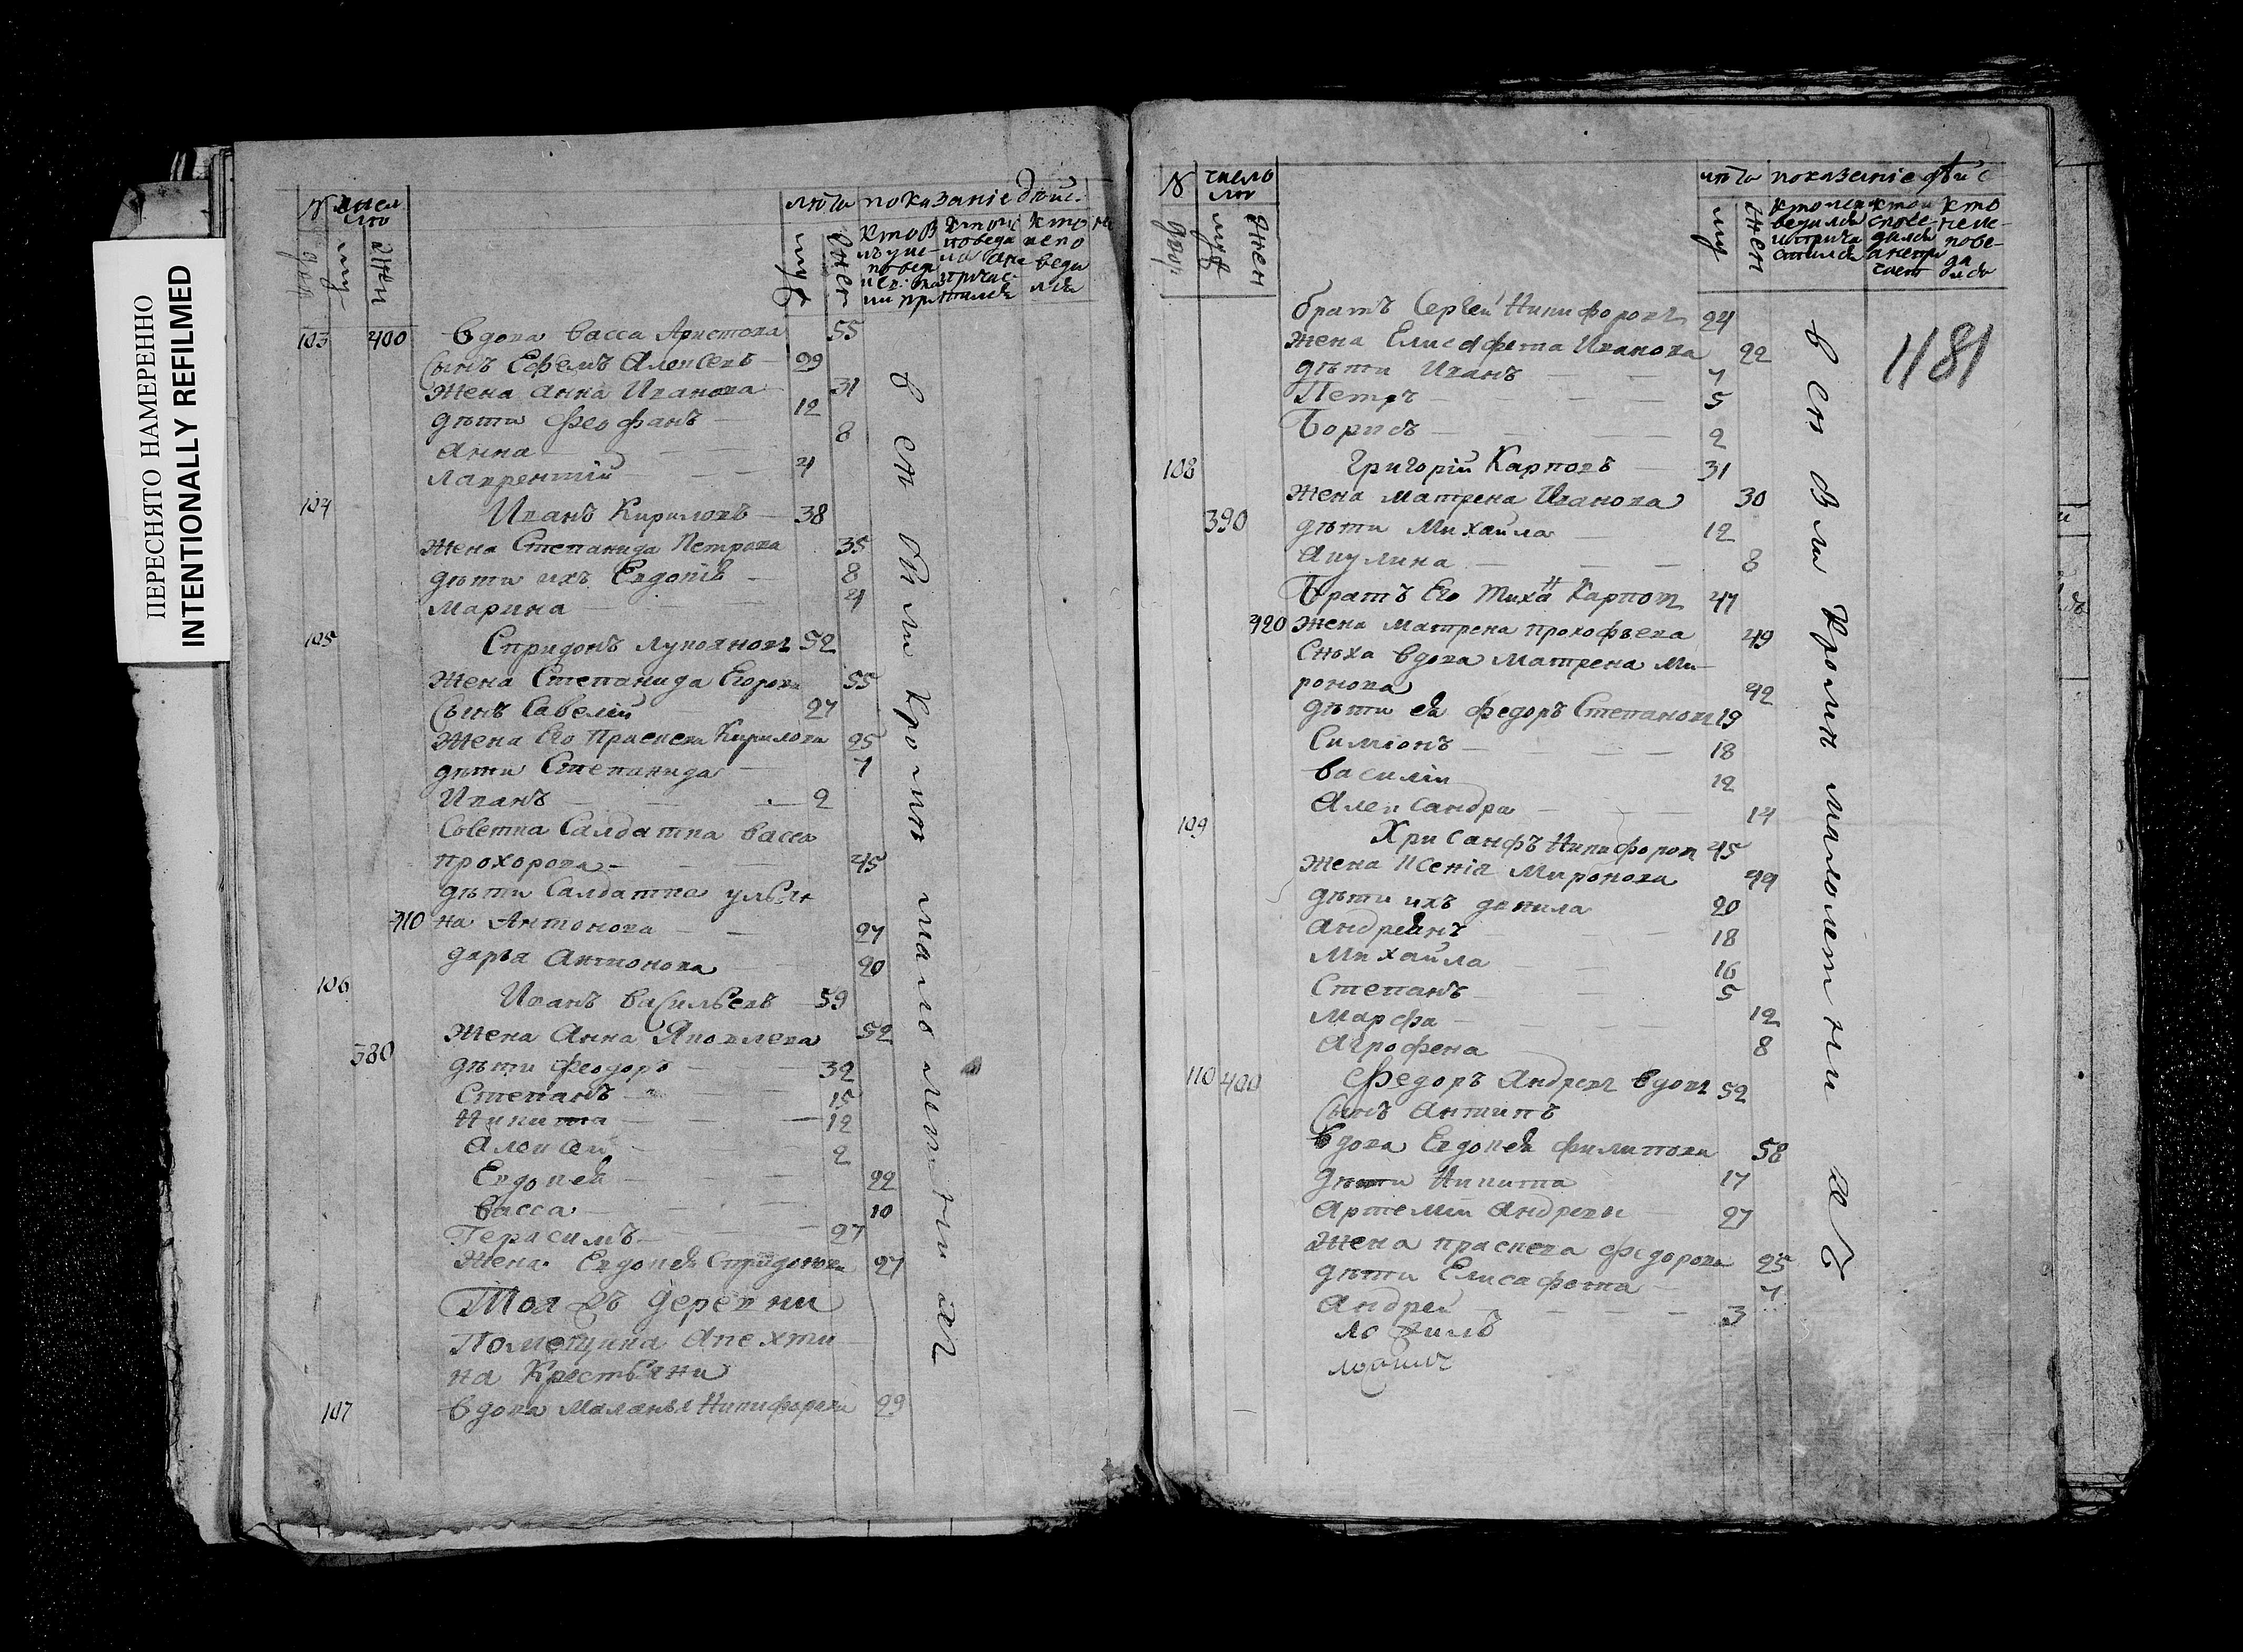 ПЕРЕСНЯТО НАМЕРЕННО
INTENTIONALLY REFILMED
лѣта показаніе дѣйс.
муж жен
103 400 вдова васса Аристова 55
Сынъ Ефемъ Алексевъ 29
жена анна Иванова 31
дѣти Феофанъ 12
анна 8
лаврентій 4
104 Иванъ Кириловъ 38
жена Степанида Петрова 35
дѣти ихъ Евдокія 8
марина 4
105 Спридонъ лукояновъ 52
жена Степанида Егорова 55
Сынъ Савелій 27
жена Его Прасковя Кирилова 25
дѣти Степанида 7
Иванъ 2
Советка Салдатка васса
прохорова 45
дѣти Салдатка ульян
410 на Антонова 27
дарья антонова 20
106 Иванъ васильевъ 59
жена Анна Яковлева 52
380 дѣти феодоръ 32
Степанъ 15
Никита 12
алексей 2
Евдокея 22
васса 10
Герасимъ 27
жена Евдокея Спридонова 27
Тоя жъ деревни
Помещика апехти
на Крестьяни
107 вдова маланья Никифорова 29
в сѣ вли кромѣ малолетнихъ
N число лю
двор муж жен
лѣта показаніе дѣйс
муж жен
1181
братъ Сергей Никифоровъ 24
жена Елисафета Иванова 22
дѣти Иванъ 7
Петръ 5
Борисъ 2
108 Григорій Карповъ 31
жена матрена Иванова 30
390 дѣти михайла 12
акулина 8
Братъ Его тиханъ Карпов 47
420 жена матрена прокофьева 49
Сноха вдова матрена ми
ронова 42
дѣти ея федоръ Степановъ 19
Симіонъ 18
василій 12
александра 14
109 Хрисанфъ Никифоров 45
жена ксенія миронова 49
дѣти ихъ данила 20
андреянъ 18
михайла 16
Степанъ 5
марфа 12
агрофена 8
110 400 Федоръ андревъ вдовъ 52
Сынъ антипъ
вдова Евдокея филипова 58
дѣти Никита 17
артемій андревы 27
жена прасковя федорова 25
дѣти Елисафета 7
андрей 3
в сѣ вли кромѣ малолетнихъ